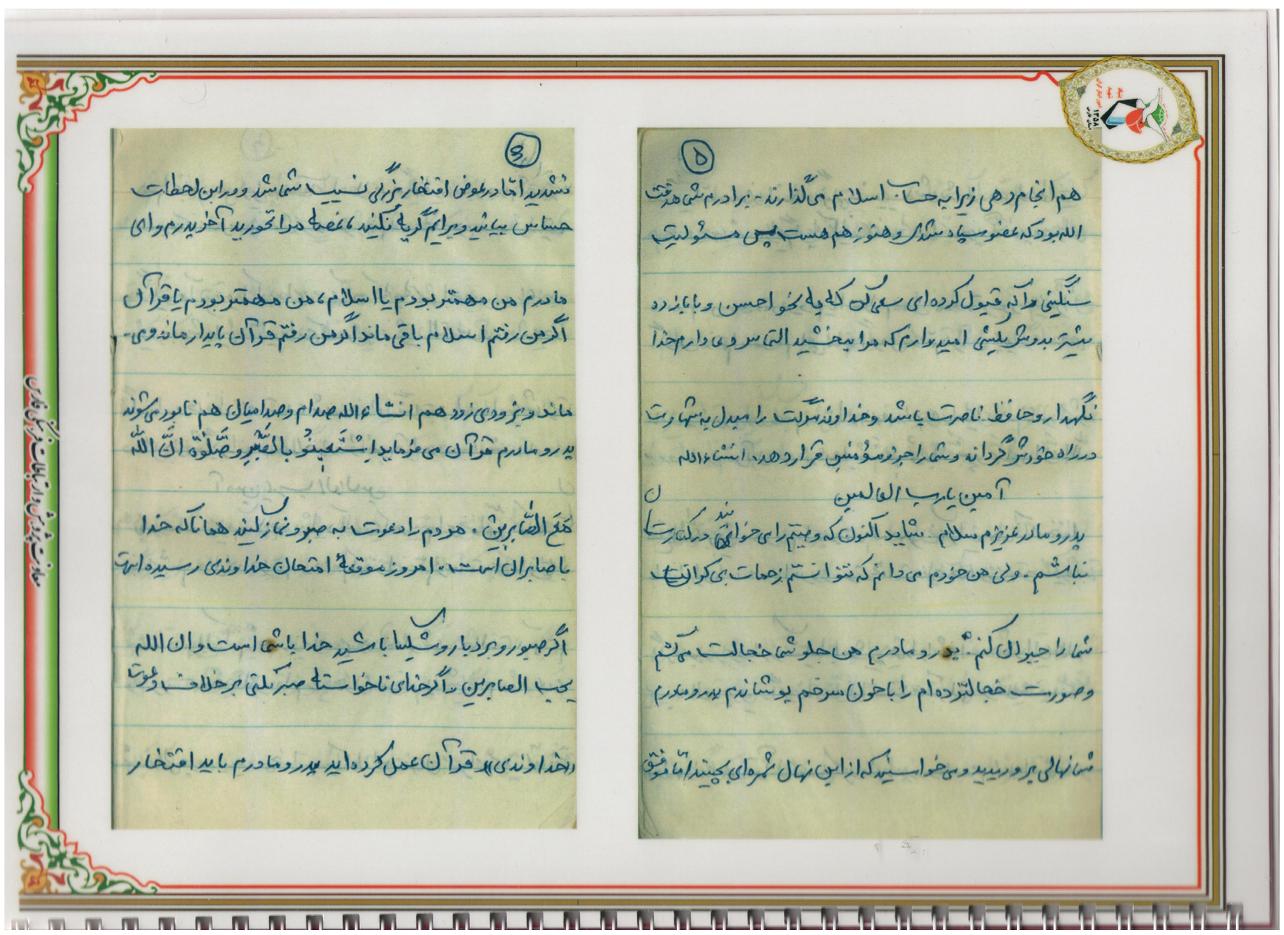 ۵
هم انجام دهی زیرا به حساب اسلام می‌گذارند. برادرم شما هدفت
الله بود که عضو سپاه شدی و هنوز هم هست پس مسئولیت
سنگینی را که قبول کرده‌ای سعی کن که به نحو احسن و با بازده
بیشتر بدوش بکشی امیدوارم که مرا ببخشید التماس دعا دارم خدا
نگهدار و حافظ و ناصرت باشد و خداوند مرگت را مبدل به شهادت
در راه خودش گرداند و شما را جزء مؤمنین قرار دهد. انشاءالله
آمین یا رب العالمین
پدر و مادر عزیزم سلام. شاید اکنون که وصیتم را می‌خوانید در کنارتان
نباشم. ولی من خودم می‌دانم که نتوانستم زحمات بی‌کران
شما را جبران کنم. پدر و مادرم من جلو شما خجالت می‌کشم
و صورت خجالتزده‌ام را با خون سرخم پوشاندم پدر و مادرم
شما نهالی پروریدید و می‌خواستید که از این نهال ثمره‌ای بچینید اما موفق
۶
نشدید اما در عوض افتخار بزرگی نسیب شما شد و در این لحظات
حساس بیائید و برایم گریه نکنید، غصه مرا نخورید آخر پدرم و ای
مادرم من مهمتر بودم یا اسلام، من مهمتر بودم یا قرآن
اگر من رفتم اسلام باقی ماند اگر من رفتم قرآن پایدار ماند و می-
ماند و بزودی زود هم انشاءالله صدام و صدامیان هم نابود می‌شوند
پدر و مادرم قرآن می‌فرماید اِسْتَعینُو بالصَّبْرِ و صَّلوٰة اِنَّ اللّٰه
مَعَ الصّٰابِرین. مردم را دعوت به صبر و نماز کنید همانا که خدا
با صابران است. امروز موقعهٔ امتحان خداوندی رسیده است
اگر صبور و بردبار و شکیبا باشید خدا با شما است و ان الله
یحب الصابرین. اگر خدای ناخواسته صبر نکنی بر خلاف دعوت
خداوندی و قرآن عمل کرده‌اید پدر و مادرم باید افتخار
معاونت پرورش و ارتباطات فرهنگی فارس